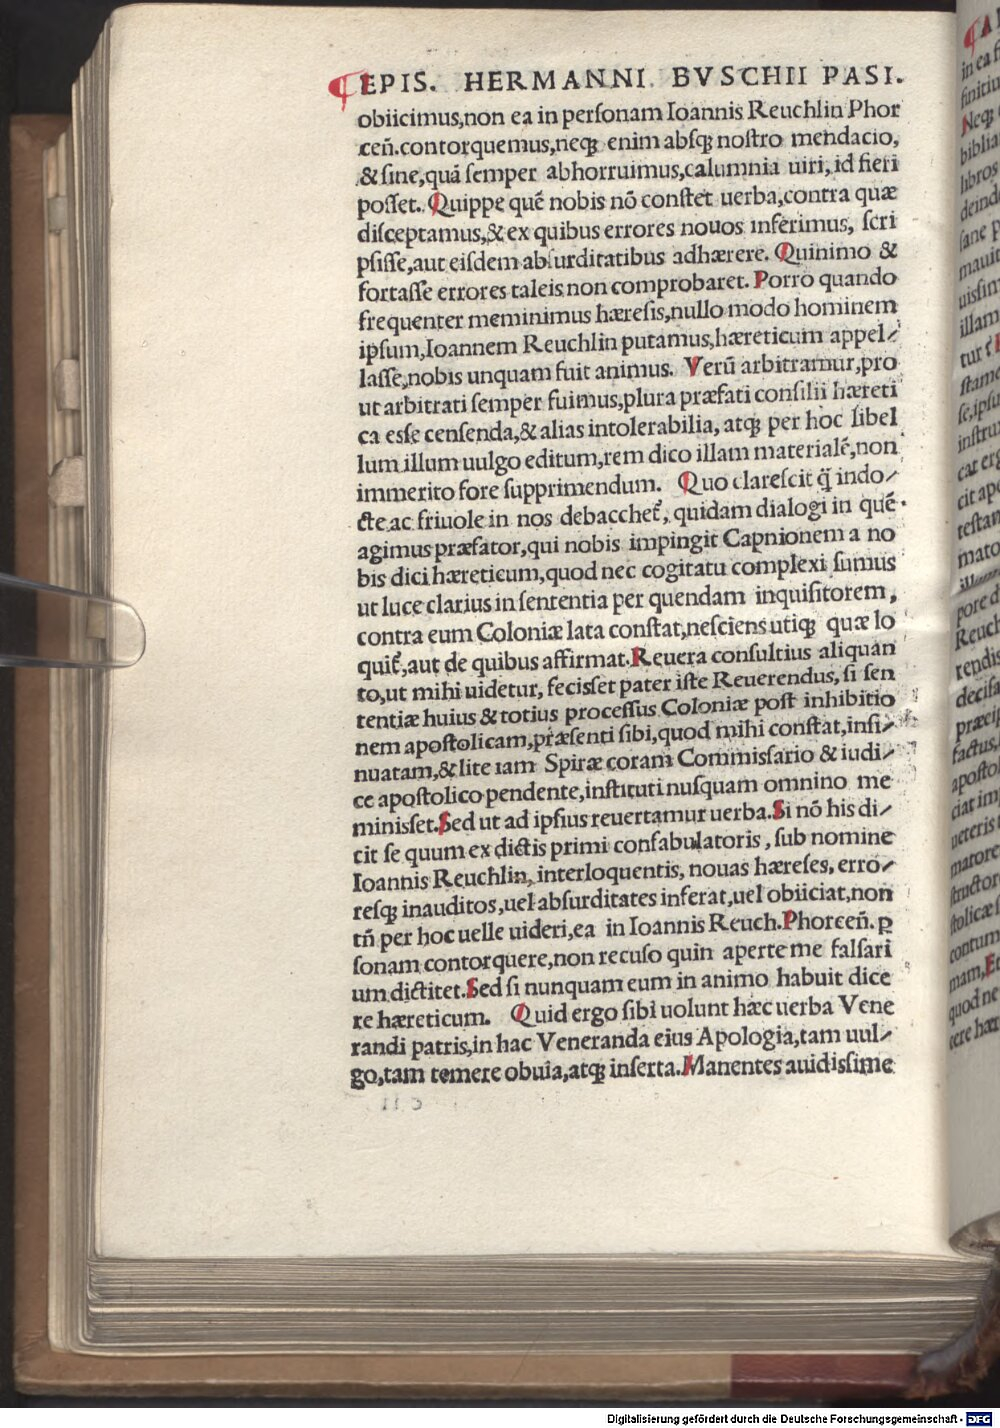 ¶EPIS. HERMANNI. BVSCHII PASI.
obiicimus,non ea in perſonam Ioannis Reuchlin Phor
ceñ.contorquemus,neqꝫ enim abſqꝫ noſtro mendacio,
& ſine,quã ſemper abhorruimus,calumnia uiri, id fieri
poſſet. Quippe quẽ nobis nõ conſtet uerba,contra quæ
diſceptamus,& ex quibus errores nouos inferimus, ſcri
pſiſſe,aut eiſdem abſurditatibus adhærere. Quinimo &
fortaſſe errores taleis non comprobaret. Porro quando
frequenter meminimus hæreſis,nullo modo hominem
ipſum,Ioannem Reuchlin putamus,hæreticum appel⸗
laſſe,nobis unquam fuit animus. Verũ arbitramur,pro
ut arbitrati ſemper fuimus,plura præfati conſilii hæreti
ca eſſe cenſenda,& alias intolerabilia, atqꝫ per hoc libel
lum illum uulgo editum,rem dico illam materialẽ,non
immerito fore ſupprimendum. Quo clareſcit q̃ indo⸗
cte ac friuole in nos debacchet᷑, quidam dialogi in quẽ
agimus præfator,qui nobis impingit Capnionem a no
bis dici hæreticum,quod nec cogitatu complexi ſumus
ut luce clarius in ſententia per quendam inquiſitorem,
contra eum Coloniæ lata conſtat,neſciens utiqꝫ quæ lo
quit᷑,aut de quibus affirmat.Reuera conſultius aliquan
to,ut mihi uidetur, feciſſet pater iſte Reuerendus, ſi ſen
tentiæ huius & totius proceſſus Coloniæ poſt inhibitio
nem apoſtolicam,præſenti ſibi,quod mihi conſtat,inſi⸗
nuatam,& lite iam Spiræ coram Commiſſario & iudi⸗
ce apoſtolico pendente,inſtituti nuſquam omnino me
miniſſet.Sed ut ad ipſius reuertamur uerba.Si nõ his di⸗
cit ſe quum ex dictis primi confabulatoris, ſub nomine
Ioannis Reuchlin, interloquentis, nouas hæreſes, erro⸗
reſqꝫ inauditos,uel abſurditates inferat,uel obiiciat,non
tñ per hoc uelle uideri,ea in Ioannis Reuch.Phorceñ. ꝑ
ſonam contorquere,non recuſo quin aperte me falſari
um dictitet.Sed ſi nunquam eum in animo habuit dice
re hæreticum. Quid ergo ſibi uolunt hæc uerba Vene
randi patris,in hac Veneranda eius Apologia,tam uul⸗
go,tam temere obuia,atqꝫ inſerta.Manentes auidiſſime
Digitalisierung gefördert durch die Deutsche Forschungsgemeinschaft - DFG